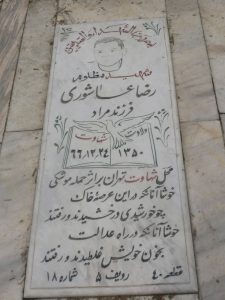 شهید مظلوم
رضا عاشوری
فرزند مراد
ولادت شهادت
۱۳۵۰ ۶۶,۱۲,۲۴
محل شهادت تهران بر اثر حمله موشکی
خوشا آنانکه در این عرصهٔ خاک
چو خورشیدی درخشیدند و رفتند
خوشا آنانکه در راه عدالت
بخون خویش غلطیدند و رفتند
قطعه ۴۰ ردیف ۵ شماره ۱۸